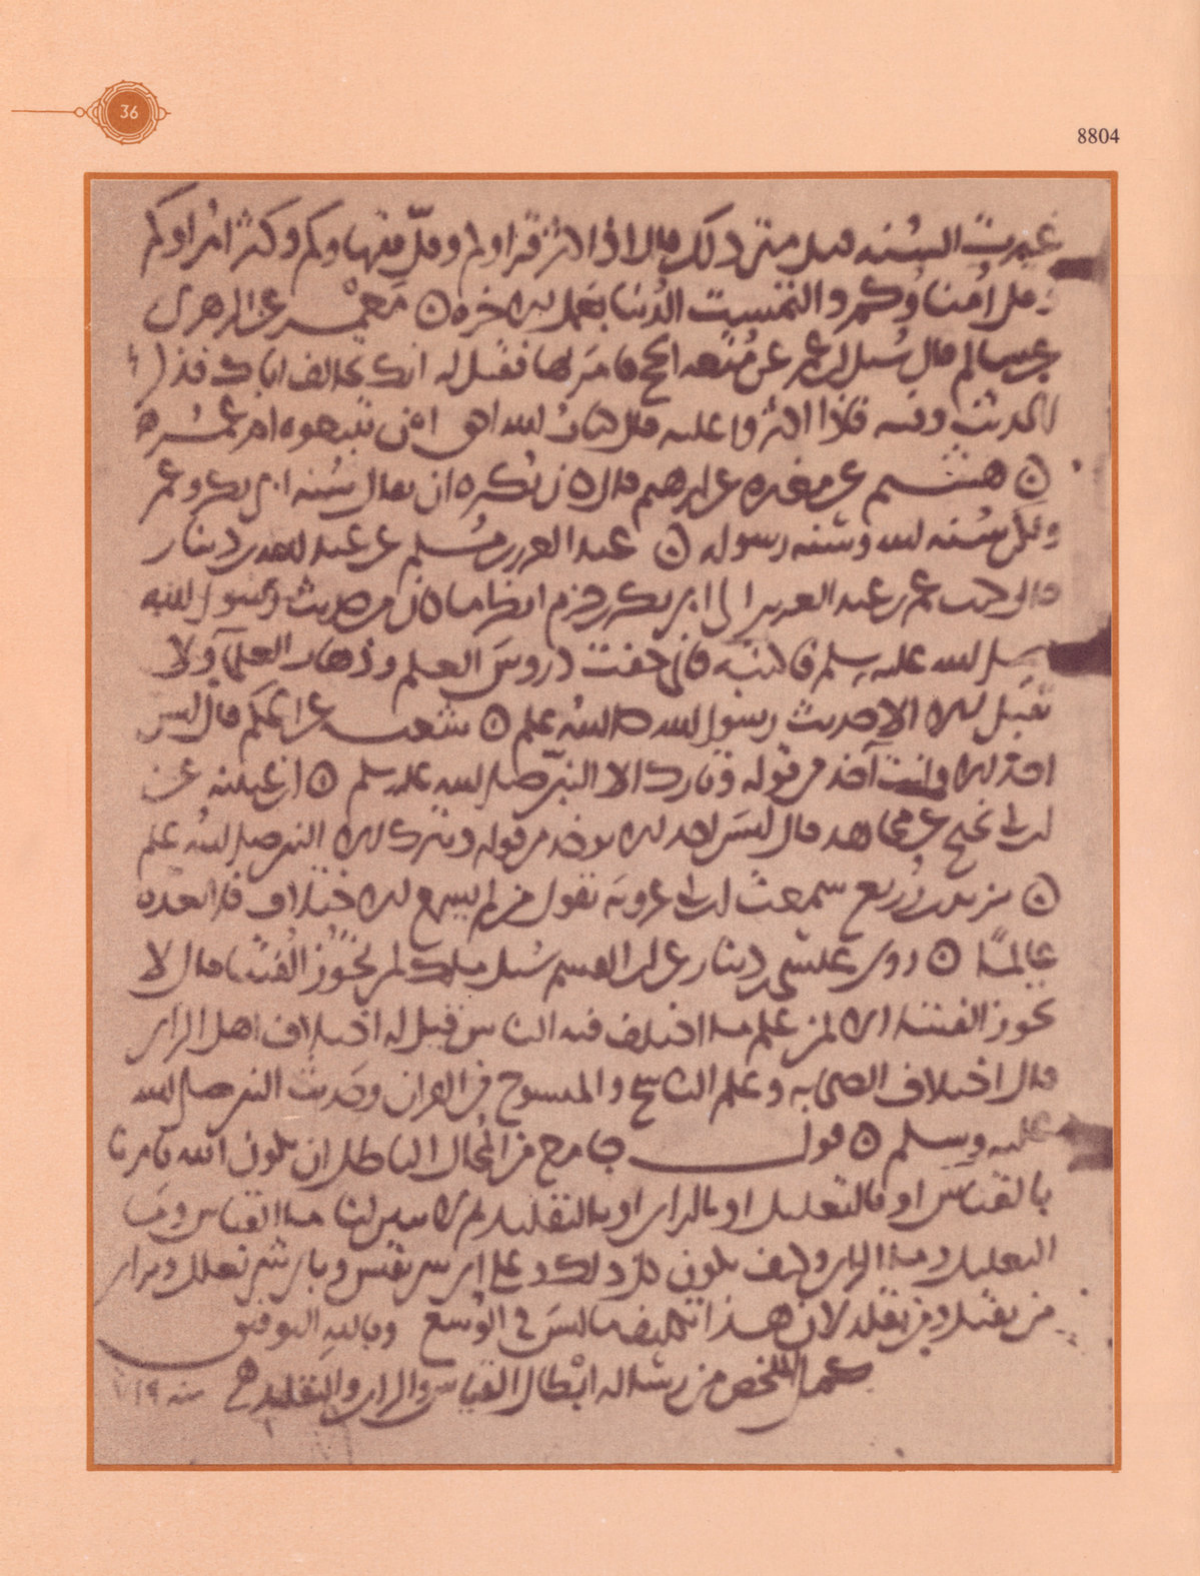 36
8804
غيرت السنه قيل متى ذلك قال اذا كثر قراوكم وقل فقهاوكم وكثر امراوكم
وقل امناوكم والتمست الدنيا بعمل الاخره ن معمر عن الزهري
عن سالم قال سئل ابن عمر عن متعه الحج فامر بها فقيل له انك تخالف اباك فذكر
الحديث وفيه فاذا اكثروا عليه قال كتاب الله احق ان تتبعوه ام عمر ه
ن هشيم عن مغيره عن ابرهيم قال كان يكره ان يقال سنه ابي بكر وعمر
ولكن سنه الله وسنه رسوله ن عبد العزيز بن مسلم عن عبد الله بن دينار
قال كتب عمر بن عبد العزيز الى ابي بكر بن حزم انظر ما كان من حديث رسول الله
صلى الله عليه وسلم فاكتبه فاني خفت دروس العلم وذهاب العلمآ ولا
تقبل الا الاحديث رسول الله صلى الله عليه وسلم ن شعبه عن الحكم قال ليس
احد الا وانت آخذ من قوله وتارك الا النبي صلى الله عليه وسلم ن ابن عيينه عن
ابن ابي نجيح عن مجاهد قال ليس احد الا يوخذ من قوله ويترك الا النبي صلى الله عليه وسلم
ن يزيد بن زريع سمعت ابن ابي عروبه يقول من لم يسمع الاختلاف فلا تعده
عالما ن روى عيسى بن دينار عن ابن القسم سئل مالك لمن تجوز الفتيا قال لا
تجوز الفتيا الا لمن علم ما اختلف فيه الناس قيل له اختلاف اهل الراي
قال اختلاف الصحابه وعلم الناسخ والمنسوخ من القران وحديث النبي صلى الله
عليه وسلم ن قول جامع من المحال الباطل ان يكون الله يامرنا
بالقياس او بالتعليل او بالراي او بالتقليد ثم لا يبين لنا ما القياس وما
التعليل وما الراي وكيف يكون كل ذلك وعلى اي شي نقيس وباي شي نعلل وبراي
من نقبل ومن نقلد لان هذا تكليف ما ليس في الوسع وبالله التوفيق
كمل الملخص من رساله ابطال القياس والراي والتقليد